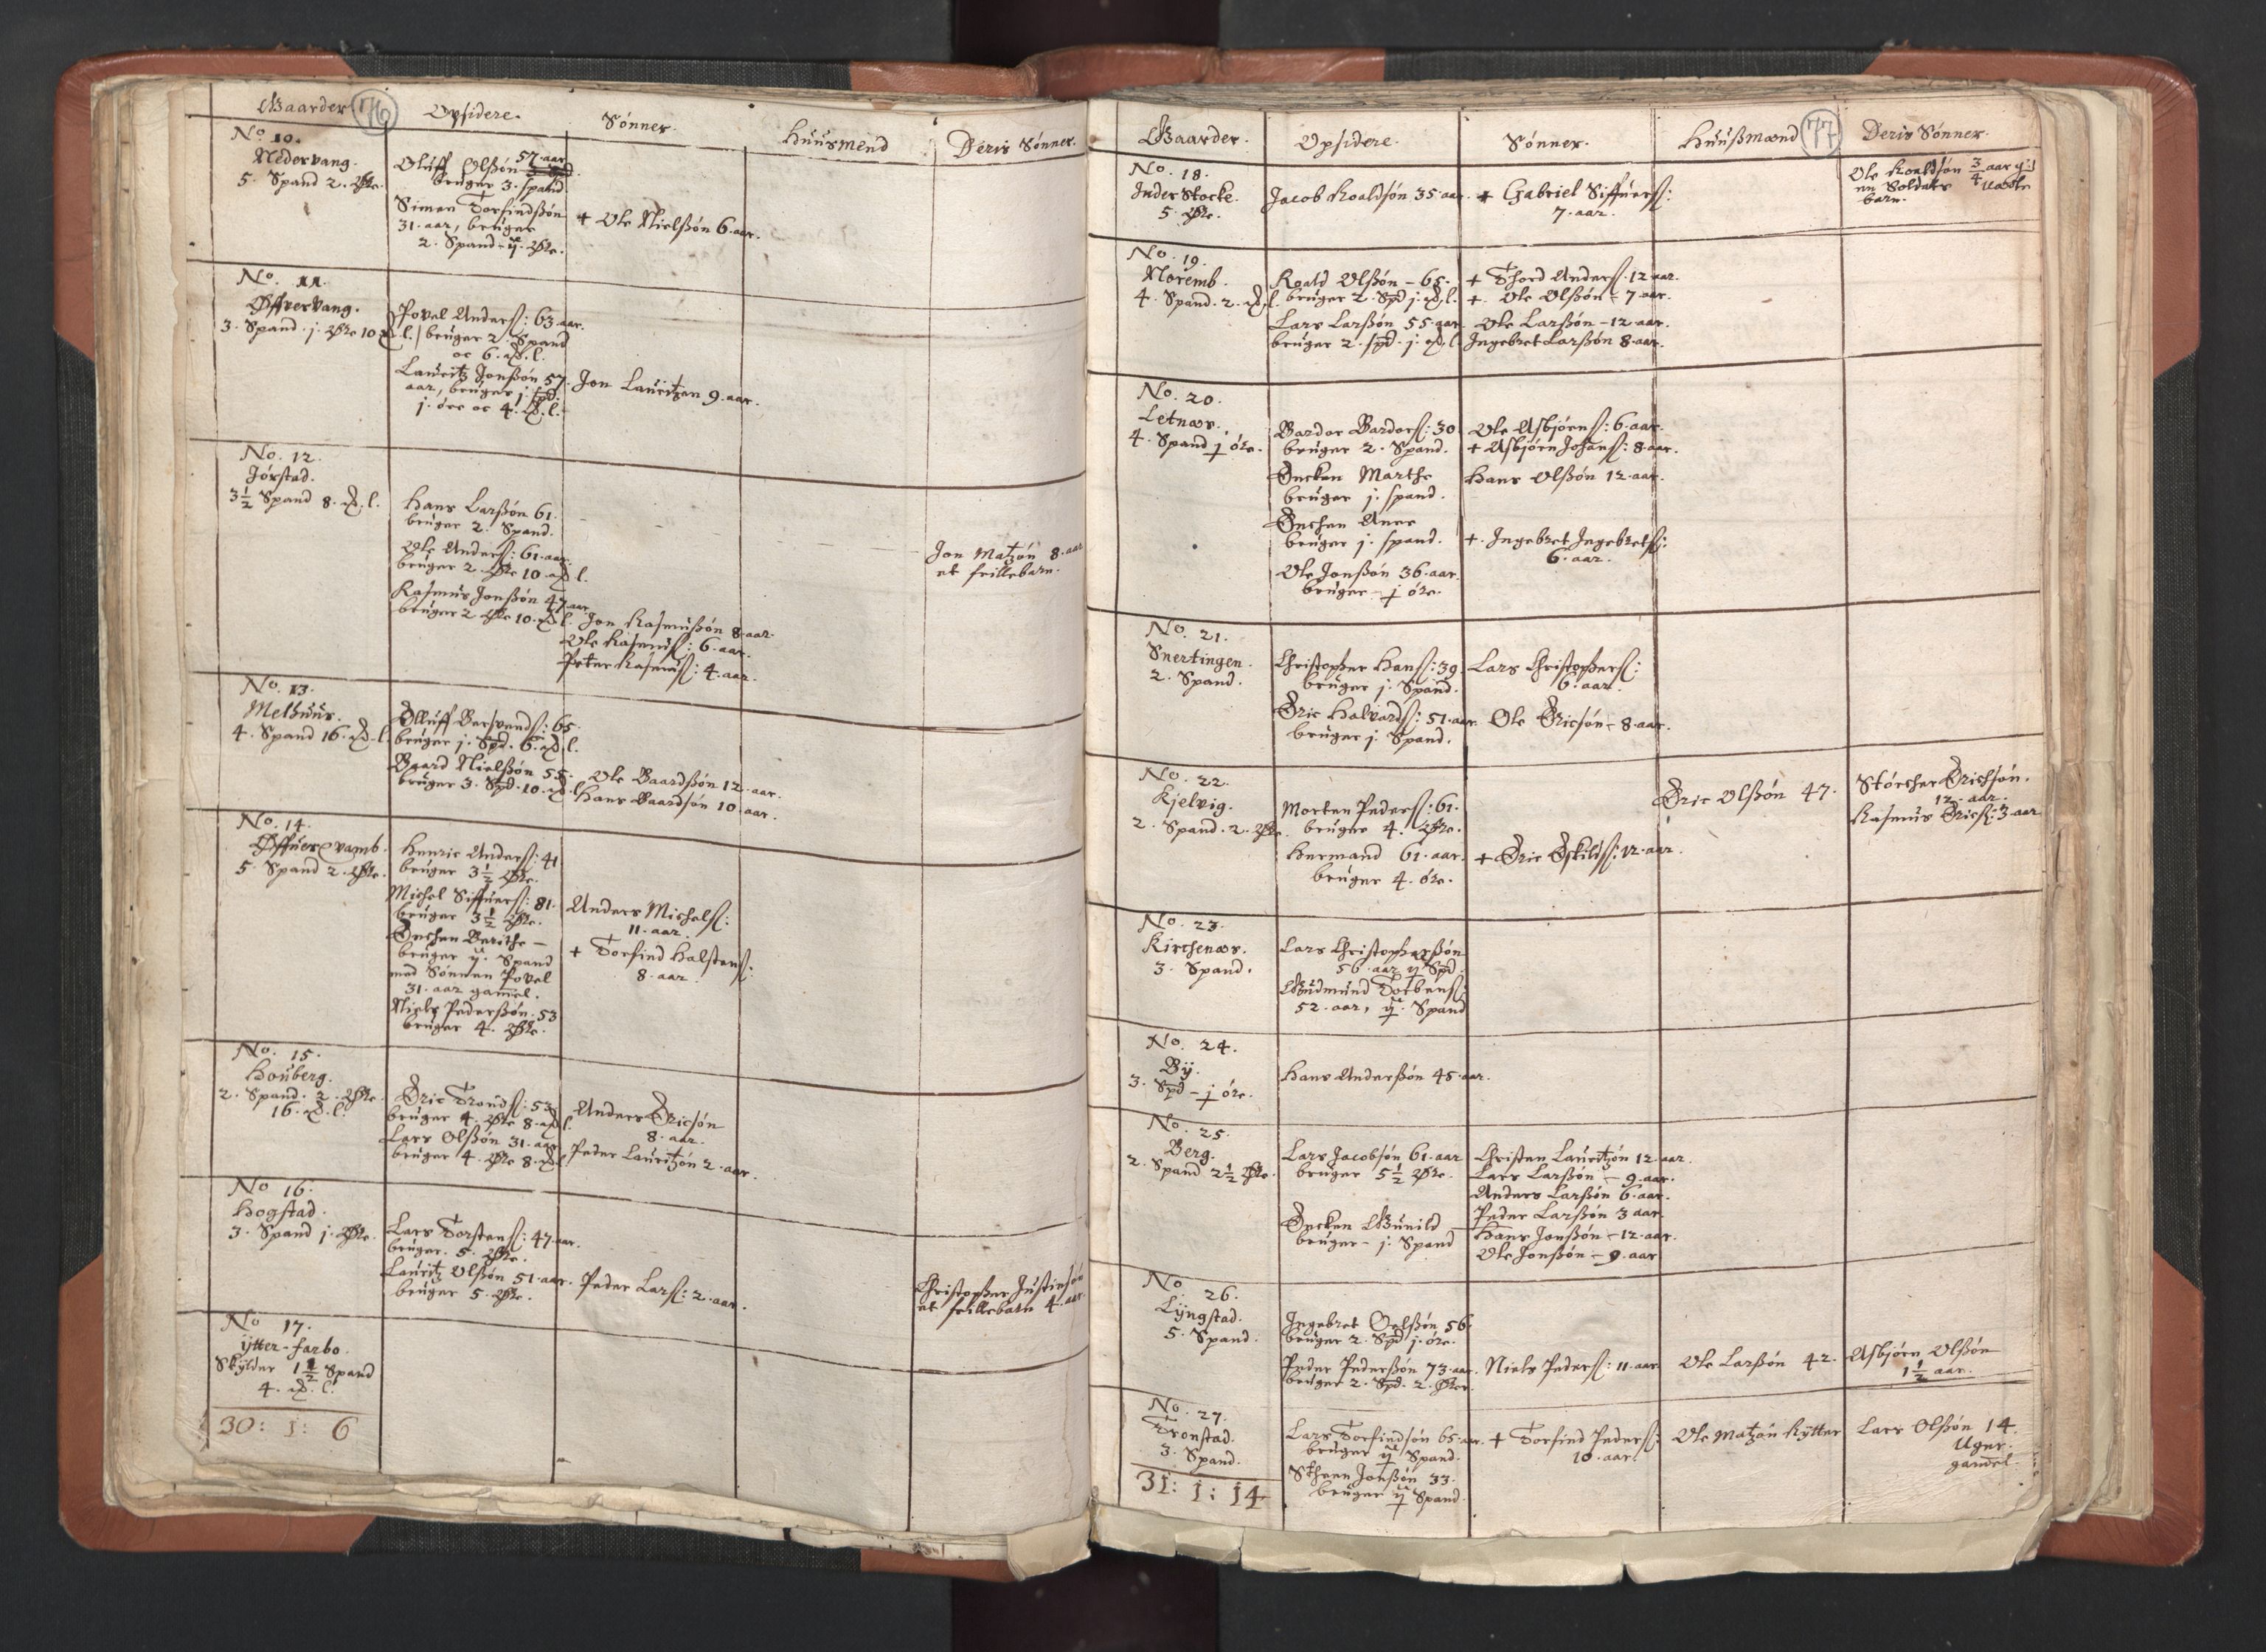 Gaarder 76 Opsidere. Sønner. Huusmend Deris Sønner.
No 10.
Nedervang.
5. Spand 2. Øre.
Oluff Olßøn 57. aar
bruger 3. spand.
Simen Torfindßøn
31. aar, bruger
2. Spand
+ Ole Nielßøn 6. aar.
No. 11.
Øffrervang.
3. Spand. j. Øre 10
Povel Anderß: 63 aar.
bruger 2. Spand
oc 6.
Lauritz Jonßøn 57.
aar, bruger j. spd.
j. øre oc 4.
Jon Lauritzen 9. aar.
No. 12.
Jørstad.
3 1/2 Spand 8.
Hans Larßøn 61.
bruger 2. Spand.
Ole Anderß: 61. aar.
bruger 2. Øre 10.
Rasmus Jonßøn 47. aar
bruger 2 Øre 10.
Jon Rasmußøn 8. aar.
Ole Rasmuß: 6. aar.
Peter Rasmuß: 4. aar.
Jon Matzøn 8. aar
et frillebarn.
No. 13.
Melhuus.
4. Spand 16.
Olluff Barsvendß: 65.
bruger j. Spd. 6.
Baard Nielßøn 55.
bruger 3. Spd. 10.
Ole Baardßøn 12. aar.
Hans Baardsøn 10. aar.
No. 14.
Øffuer Qvamb.
5. Spand 2. Øre.
Henric Anderß: 41
bruger 3 1/2 Øre.
Michel Siffuerß: 81.
bruger 3 1/2 Øre.
Enchen Berithe —
bruger Spand
med Sønnen Povel
31. aar gamel.
Niels Pederßøn. 53
bruger 4. Øre.
Anders Michelß:
11. aar.
+ Torfind Halstenß:
8. aar.
No. 15.
Houberg.
2. Spand. 2. Øre.
16.
Eric Trondß: 53
bruger 4. Øre 8.
Lars Olßøn 31. aar
bruger 4. Øre 8.
Anders Ericsøn
8. aar.
Peder Lauritzøn 2. aar.
No 16.
Hogstad.
3. Spand j. Øre.
Lars Torstenß: 47. aar.
bruger. 5. Øre.
Lauritz Olßøn 51. aar.
bruger 5. Øre.
Peder Larß: 2. aar.
Christopher Justinsøn
et frillebarn 4. aar.
No 17.
ytter-farbo.
Skylder 1 1/2 Spand
4.
30: 1: 6
Gaarder. Opsidere. Sønner. Huußmænd 77 Deris Sønner.
No. 18.
Inder Stocke.
5. Øre.
Jacob Roaldsøn 35. aar.
+ Gabriel Siffuerß:
7. aar.
Ole Roaldsøn 3/4 aar
en Soldats
barn.
No. 19.
Noremb.
4. Spand. 2.
Roald Olßøn – 65.
bruger 2. Spd j.
Lars Larßøn 55. aar.
bruger 2. spd. j.
+ Thord Anderß. 12. aar.
+. Ole Olßøn – 7. aar.
Ole Larßøn – 12. aar.
Ingebret Larßøn 8. aar.
No. 20.
Letnær.
4. Spand j øre.
Bardor Bardorß: 30
bruger 2. Spand.
Encken Marthe
bruger j. spand.
Enchen Aner
bruger j. spand.
Ole Jonßøn 36. aar.
bruger – j øre.
Ole Asbjørnß: 6. aar.
+ Asbjørn Johanß: 8. aar.
Hans Olßøn 12. aar.
+. Ingebret Ingebretß:
6. aar.
No. 21.
Snertingen.
2. Spand.
Christopher Hanß: 39.
bruger j. Spand.
Eric Halvardß: 51. aar.
bruger j. Spand.
Lars Christopherß:
6. aar.
Ole Ericsøn – 8. aar.
No. 22.
Kjelvig.
2. Spand. 2. Øre.
Morten Pederß: 61.
bruger 4. Øre.
Hermand 61. aar.
bruger 4. øre.
+ Eric Eskildß: 12. aar.
Eric Olßøn 47.
Størcher Erichsøn.
12. aar.
Rasmus Ericß: 3 aar
No. 23.
Kirchenær.
3. Spand.
Lars Christopherßøn
56. aar Spd.
Gudmund Torbenß:
52. aar, Spand
No. 24.
By.
3. Spd – j øre.
Hans Anderßøn 45. aar.
No. 25.
Berg.
2. Spand 2 1/2 Øre.
Lars Jacobsøn 61. aar
bruger 5 1/2 Øre.
Encken Gunild
bruger – j. Spand
Christen Lauritzøn 12. aar.
Lars Larßøn – 9. aar.
Anders Larßøn 6. aar.
Peder Larßøn 3 aar.
Hans Jonßøn – 12. aar.
Ole Jonßøn – 9. aar
No. 26.
Lyngstad.
5. Spand.
Ingebret Oelßøn 56.
bruger 2. Spd j. øre.
Peder Pederßøn 73. aar.
bruger 2. Spd. 2. Ører.
Niels Pederß: 11. aar.
Ole Larßøn 42.
Asbjørn Olßøn
1 1/2 aar.
No. 27.
Tronstad.
3. Spand.
31: 1: 14
Lars Torfindsøn 65. aar.
bruger Spand.
Stheen Jonßøn 33.
bruger Spand.
+ Torfind Pederß:
10. aar.
Ole Matzøn Rytter
Lars Olßøn 14.
Uger.
gamel.